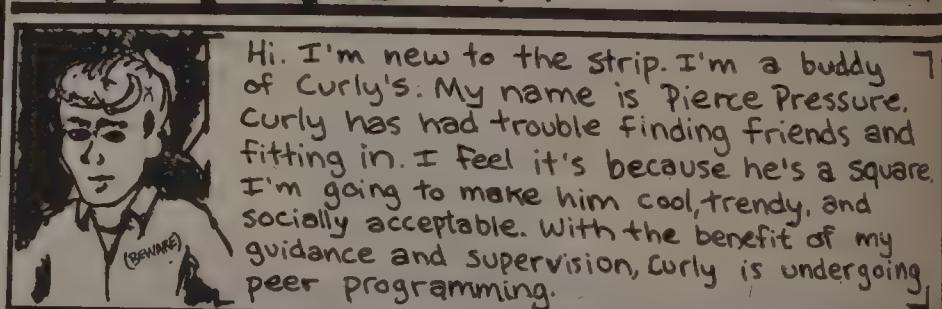 Hi. I'm new to the strip. I'm a buddy
of Curly's. My name is Pierce Pressure.
Curly has had trouble finding friends and
fitting in. I feel it's because he's a square.
I'm going to make him cool, trendy, and
socially acceptable. With the benefit of my
guidance and supervision, Curly is undergoing
peer programming.
(BEWARE)